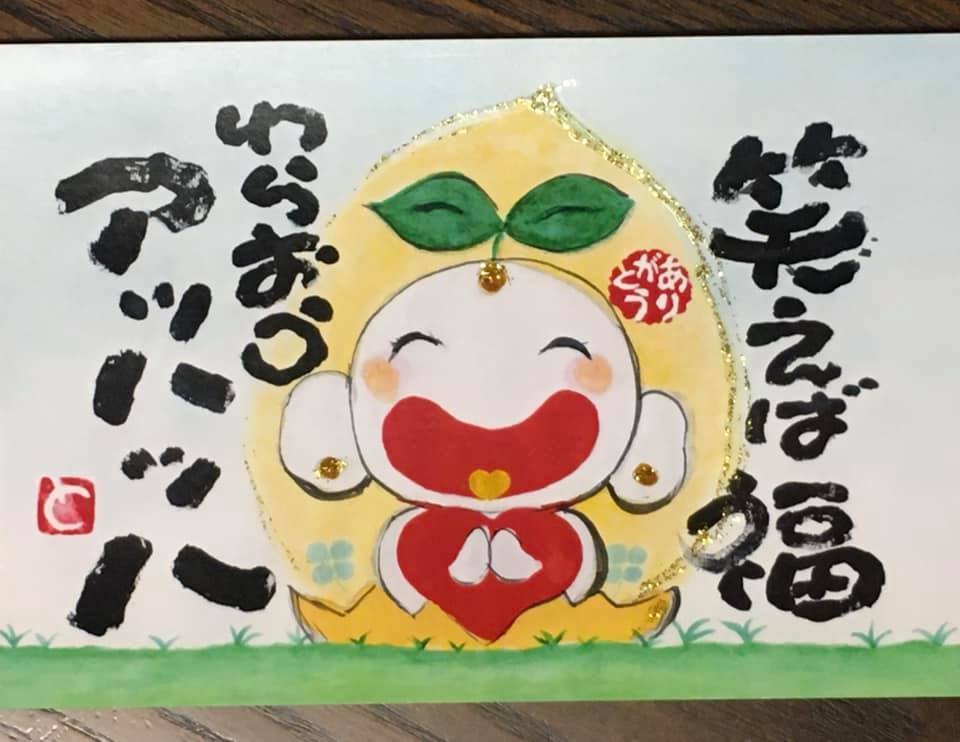 笑えば福
ありがとう
わらおう
アッハッハ
と